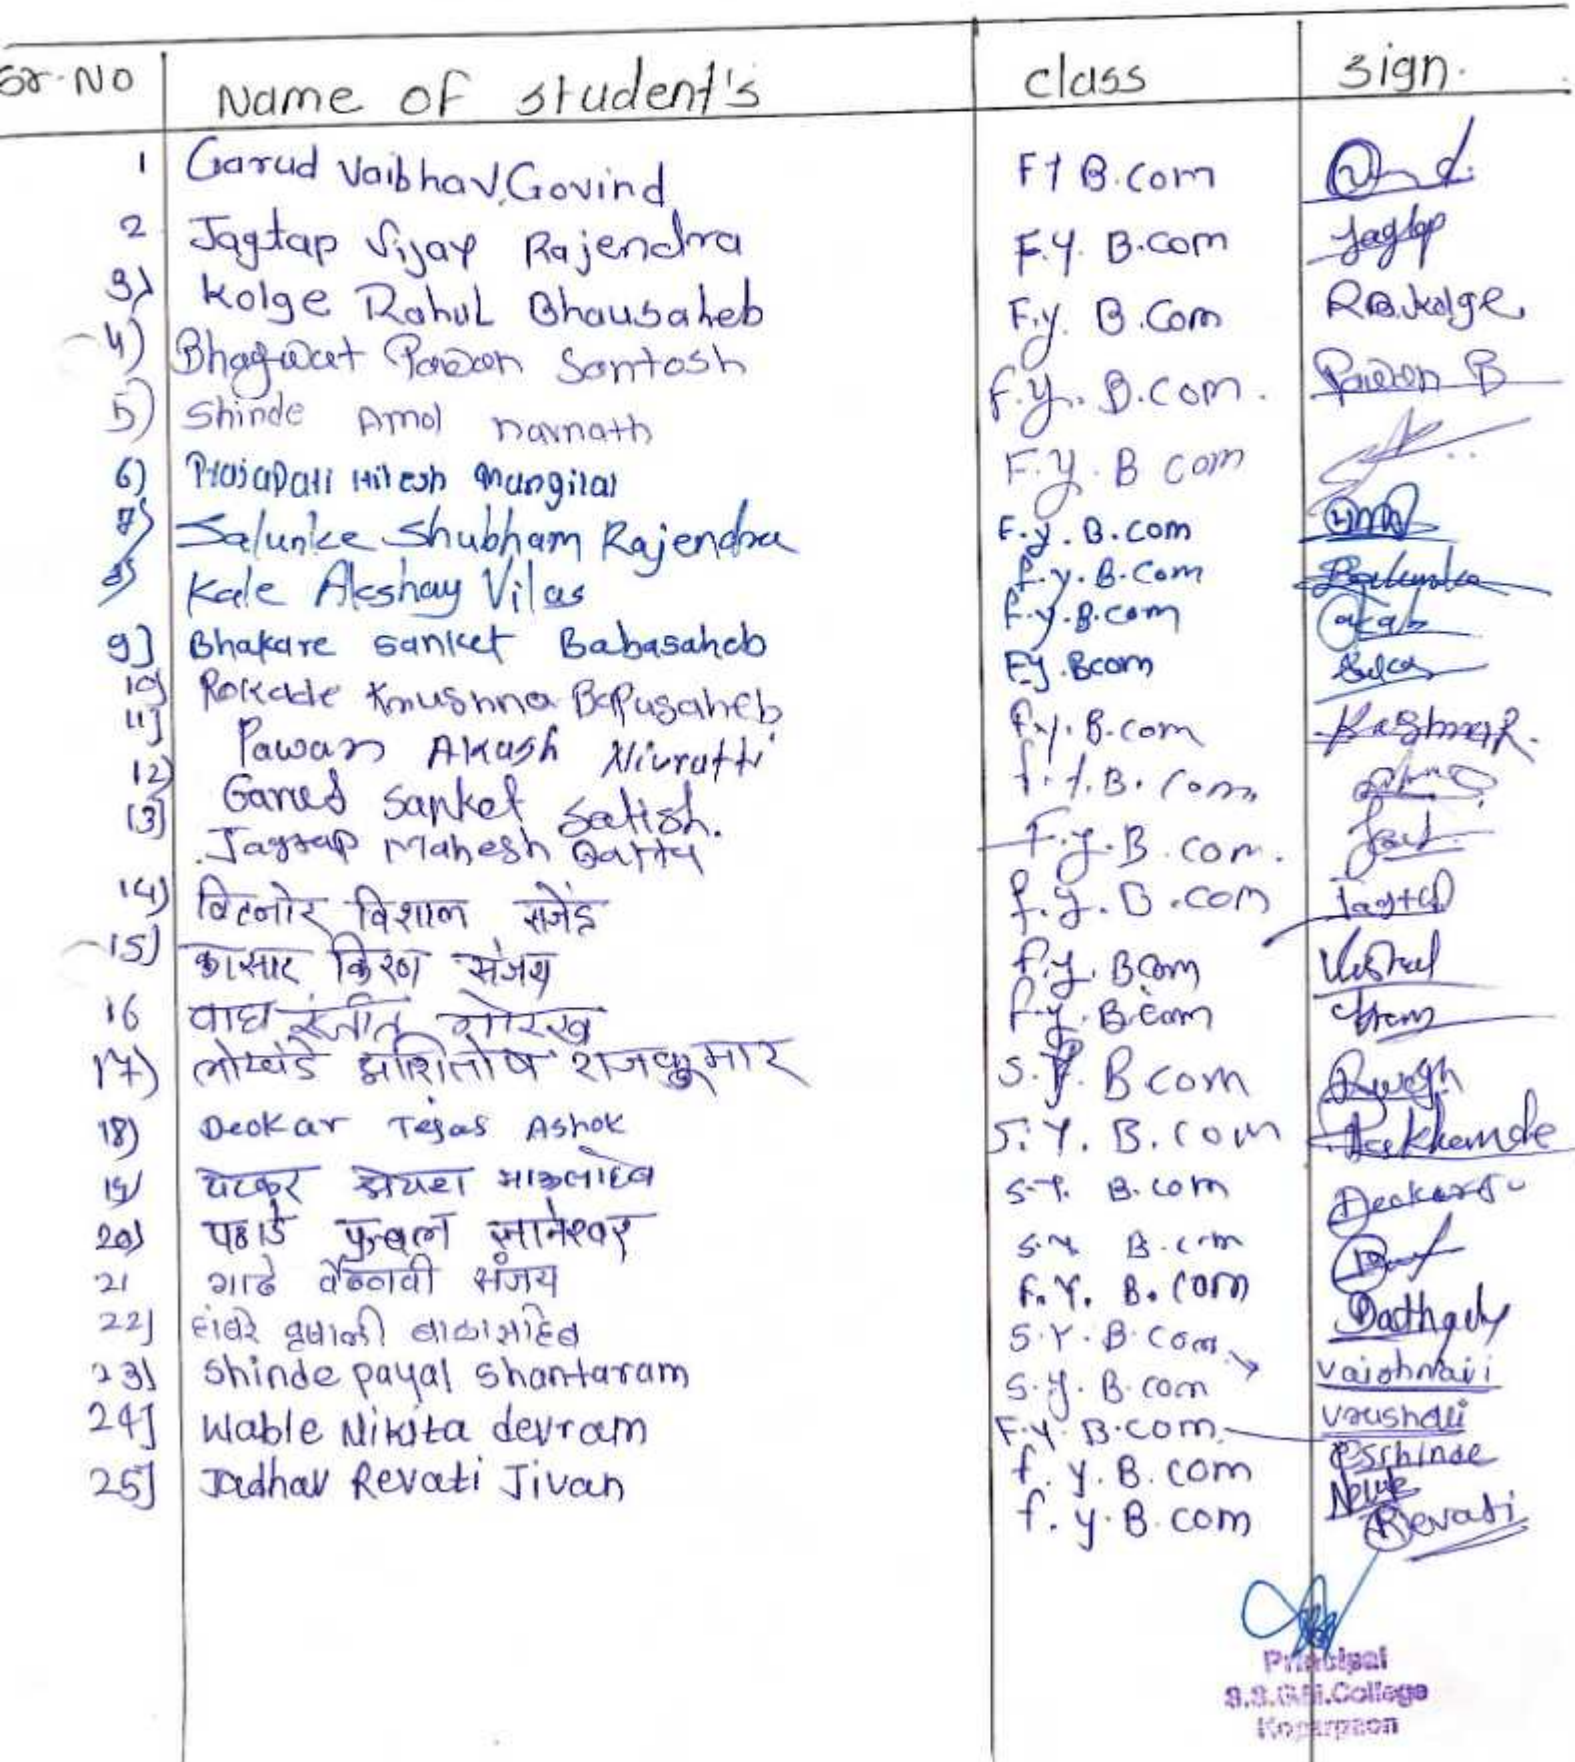 Sr. No Name of student's class sign.
1 Garud Vaibhav Govind FY B.com
2 Jagtap Vijay Rajendra F.Y. B.com Jagtap
3) Kolge Rahul Bhausaheb F.y. B.Com R.B.Kolge
4) Bhagwat Pawan Santosh F.y. B.com. Pawan B
5) Shinde Amol navnath F.Y. B com
6) Prajapati Hitesh Mangilal F.y. B.com
7) Salunke Shubham Rajendra F.y. B.Com Salunke
8) Kale Akshay Vilas F.y. B.com
9] Bhakare sanket Babasaheb F.y. Bcom
10] Rokade Krushna Bapusaheb F.y. B.com
11] Pawar Akash Nivrutti F.Y. B. Com
12) Garud Sanket Satish. F.y. B. com.
13] Jagtap Mahesh Datta F.y. B.com Jagtap
14) विटनोर विशाल राजेंद्र F.y. Bcom Vishal
15) कासार किरण संजय F.y. B.com
16 वाघ रंजीत गोरख S.Y. B com Rwagh
17) लोखंडे आशितोष राजकुमार S.Y. B.com Lokhande
18) Deokar Tejas Ashok S.Y. B.com Deokar
19) S.Y. B.com
20) ज्ञानेश्वर F.Y. B.com
21 गाढे वैष्णवी संजय S.Y. B.Com vaishnavi
22] बाळासाहेब S.y. B.com vrushali
23) Shinde payal Shantaram F.Y. B.com P.S.Shinde
24] Wable Nikita devram f.y. B. com
25] Jadhav Revati Jivan f.y. B. com Revati
Principal
S.S.G.M. College
Kopargaon